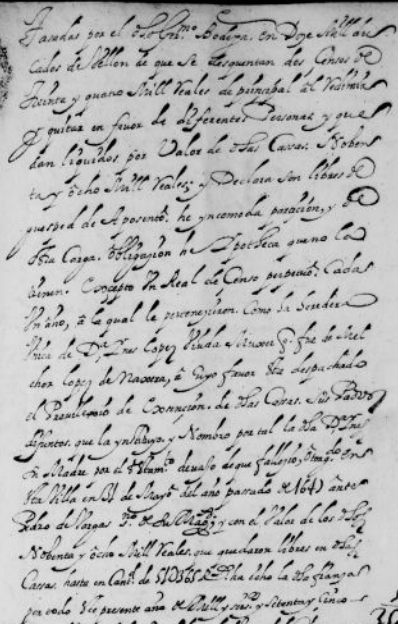 tasadas por el dho Germo Bodega. En Doze Mill du
cados de Vellon de que se desquentan dos Censos de
treinta y quatro Mill Reales de principal al Redimir
y quitar en favor de diferentes Personas y que
dan liquidos por Valor de dhas Cassas. Noben
ta y ocho Mill Reales; y Declara son libres de
guesped de Aposento he yncomoda partizion, y de
otra Carga, obligazion he Ypotheca que no la
tienen. Excepto Un Real de Censo perpetuo. Cada
Un año, a la qual le pertenezieron. Como ha heredera
Unica de Da Ynes Lopez Viuda Muxer q. fue de Mel
chor Lopez de a Cuyo favor esta despachado
el Previlexio de Exempcion de dhas Cassas. Sus Padres
difuntos, que la ynstituyo, y Nombro por tal la dha Da Ynes
su Madre por el testamto devajo de que fallezio, otorgdo En
esta Villa en de Mayo del año passado de 164 ante
Pedro de Vargas sno de su Magd y con el Valor de los dhos
Nobenta y ocho Mill Reales, que quedaron libres en dhas
Cassas, hasta en Cantd de ha echo la dha franza
por todo este presente año de Mill y seisos y setenta y Cinco